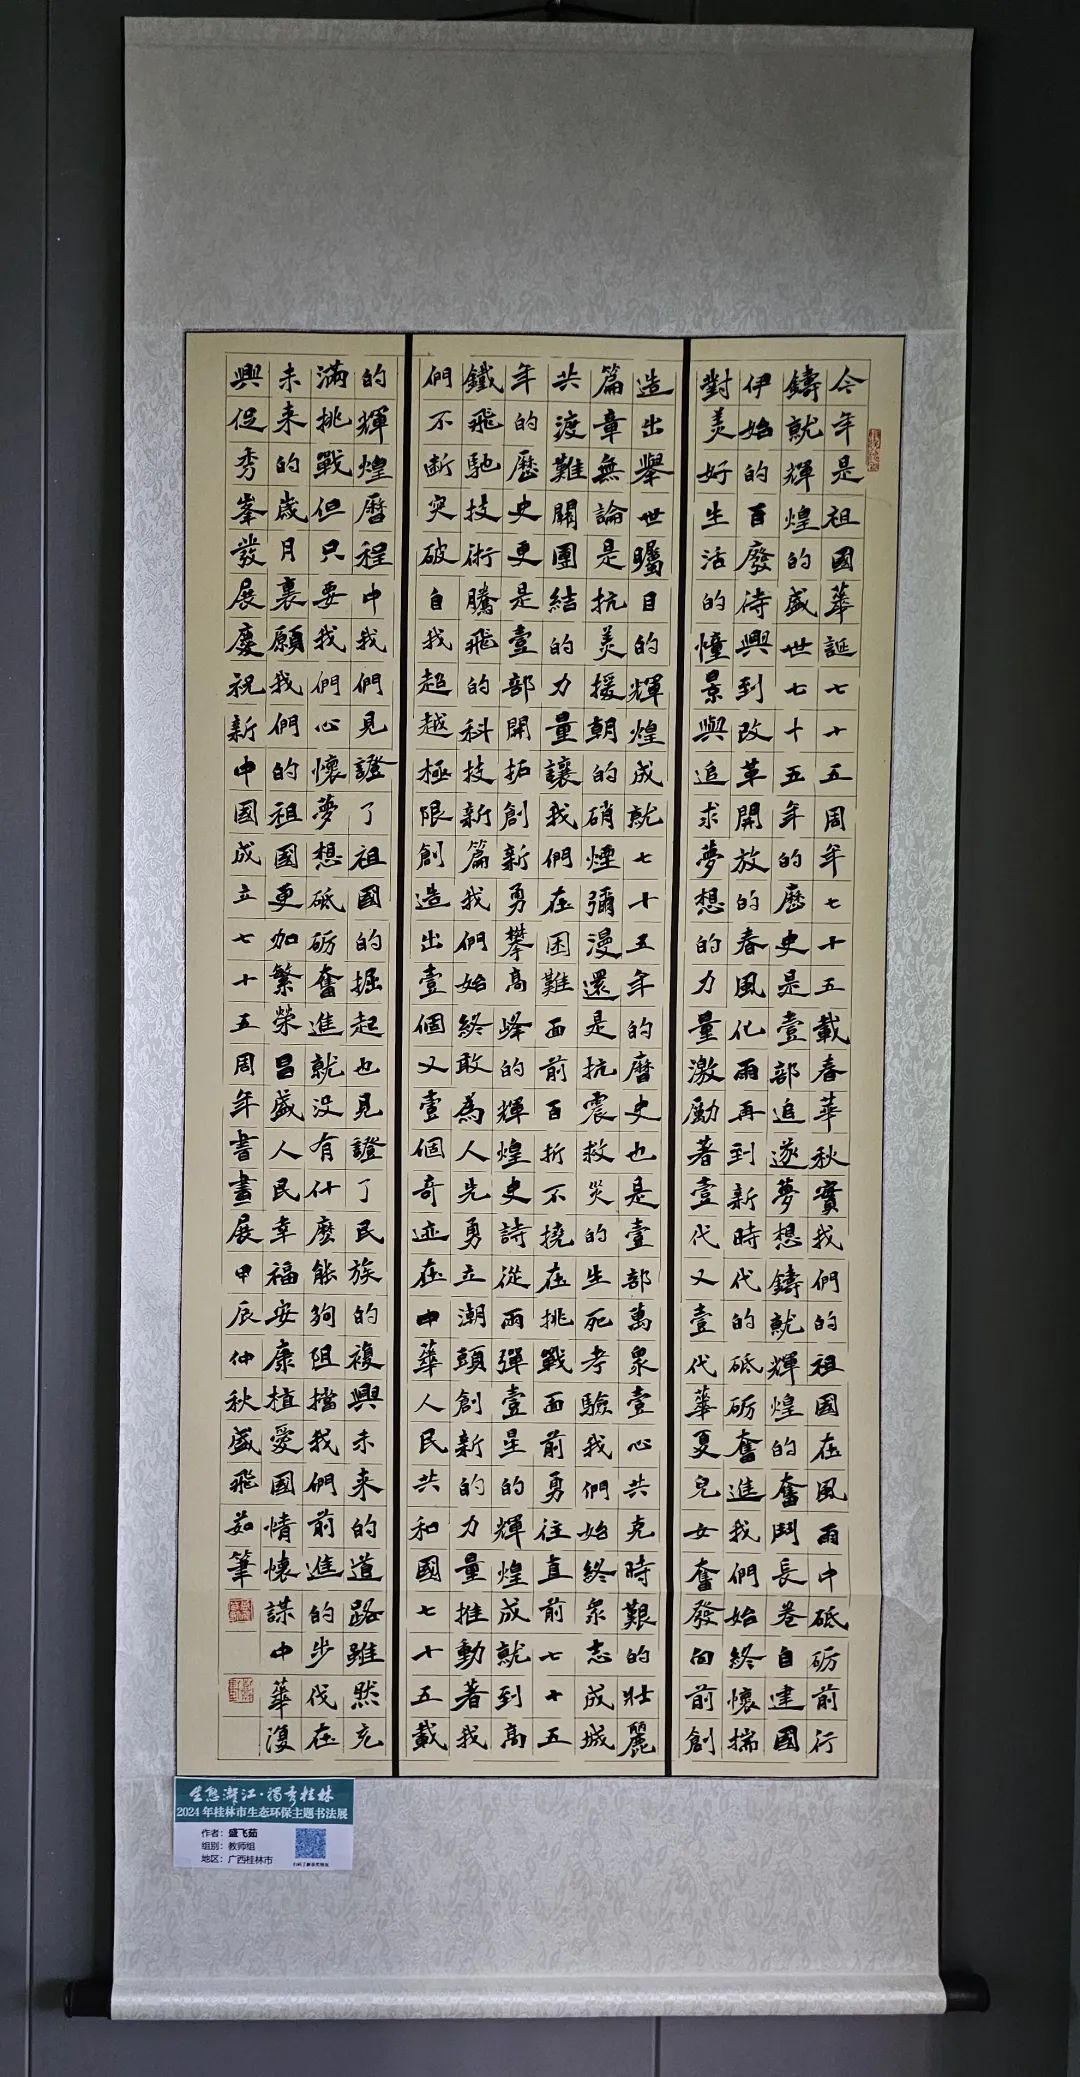 今年是祖國華誕七十五周年七十五載春華秋實我們的祖國在風雨中砥砺前行
鑄就輝煌的盛世七十五年的歷史是壹部追逐夢想鑄就輝煌的奮鬥長卷自建國
伊始的百廢待興到改革開放的春風化雨再到新時代的砥砺奮進我們始終懷揣
對美好生活的憧景與追求夢想的力量激勵著壹代又壹代華夏兒女奮發向前創
造出舉世矚目的輝煌成就七十五年的曆史也是壹部萬衆壹心共克時艱的壯麗
篇章無論是抗美援朝的硝煙彌漫還是抗震救災的生死考驗我們始終衆志成城
共渡難關團結的力量讓我們在困難面前百折不撓在挑戰面前勇往直前七十五
年的歷史更是壹部開拓創新勇攀高峰的輝煌史詩從兩彈壹星的輝煌成就到高
鐵飛馳技術騰飛的科技新篇我們始終敢為人先勇立潮頭創新的力量推動著我
們不斷突破自我超越極限創造出壹個又壹個奇迹在中華人民共和國七十五載
的輝煌曆程中我們見證了祖國的掘起也見證了民族的複興未来的道路雖然充
滿挑戰但只要我們心懷夢想砥砺奮進就没有什麽能夠阻擋我們前進的步伐在
未来的歲月裏願我們的祖國更加繁榮昌盛人民幸福安康植愛國情懷謀中華復
興促秀峯發展慶祝新中國成立七十五周年書畫展甲辰仲秋盛飛茹筆
生态漓江·独秀桂林
2024年桂林市生态环保主题书法展
作者：盛飞茹
组别：教师组
地区：广西桂林市